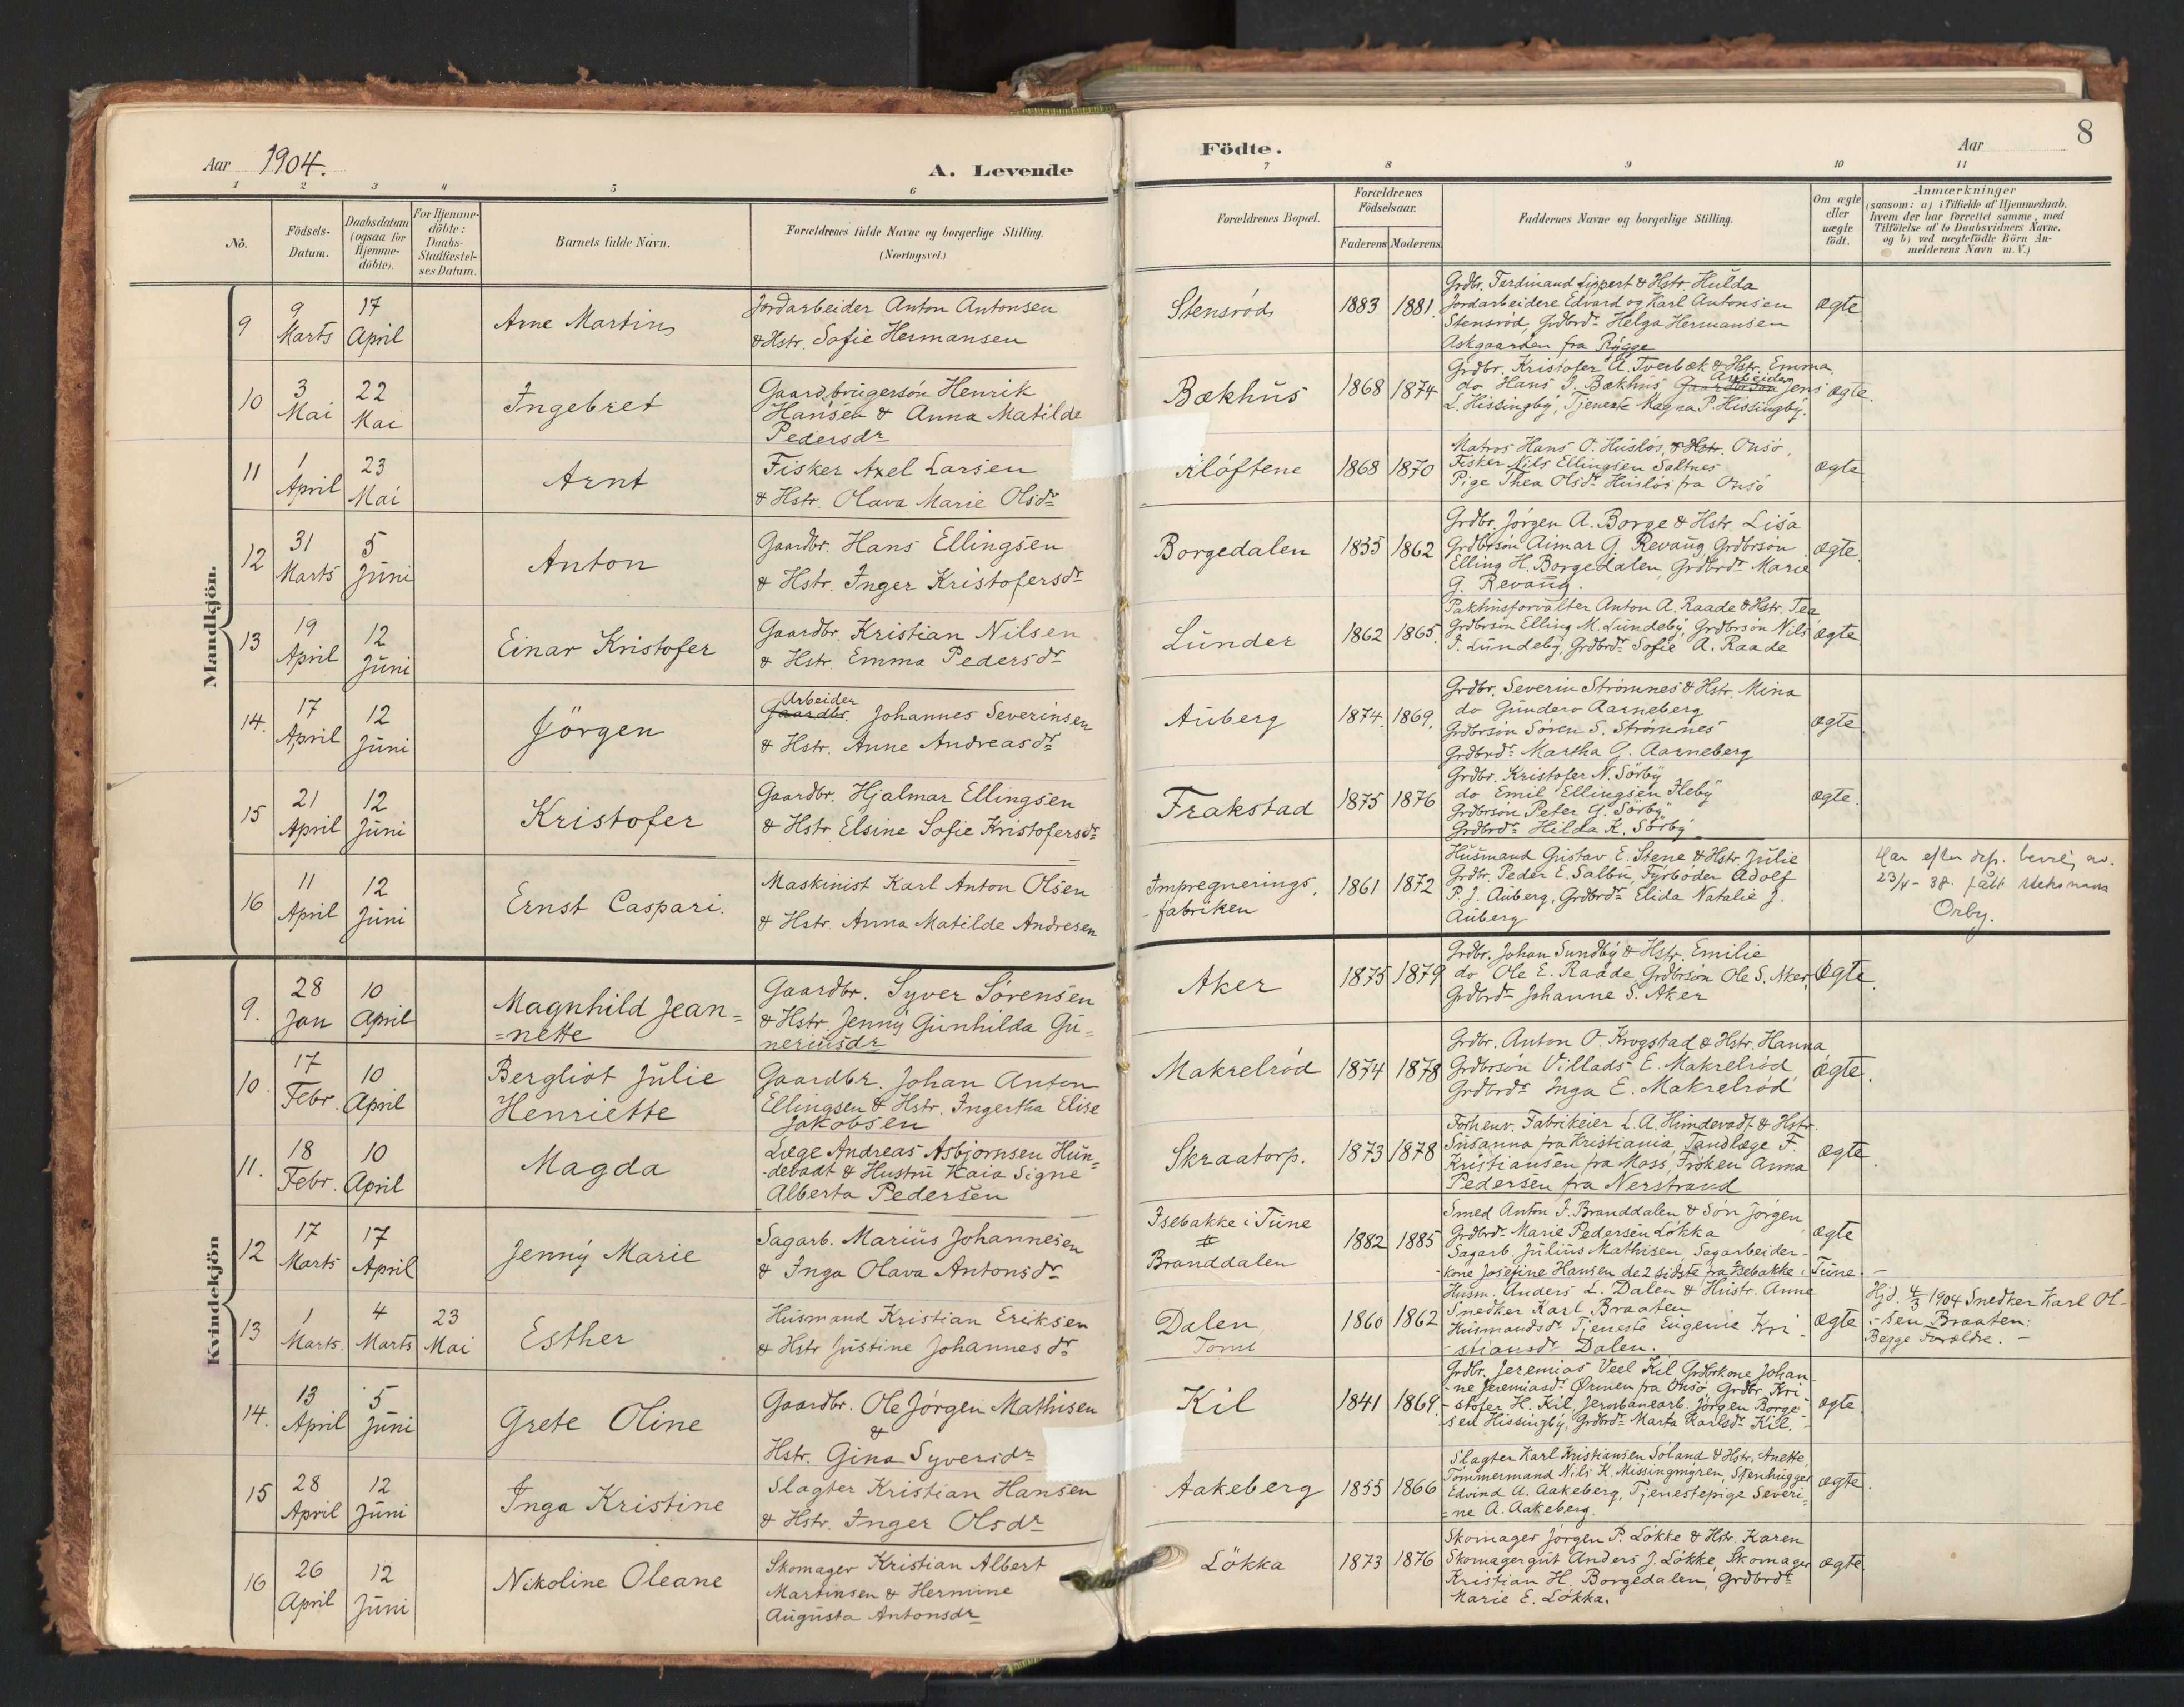 Aar 1904.
A. Levende
Födte.
Aar
8
1 2 3 4 5 6 7 8 9 10 11
No.
Födsels-Datum.
Daabsdatum (ogsaa for Hjemme-döbte).
For Hjemme-döbte: Daabs-Stadfæstel-ses Datum.
Barnets fulde Navn.
Forældrenes fulde Navne og borgerlige Stilling. (Næringsvei.)
Forældrenes Bopæl.
Forældrenes Födselsaar.
Faderens Moderens
Faddernes Navne og borgerlige Stilling.
Om ægte eller uægte födt.
Anmærkninger
(saasom: a) i Tilfælde af Hjemmedaab.
hvem der har forrettet samme, med
Tilföielse af to Daabsvidners Navne.
og b) ved uægtefödte Börn An-
melderens Navn m.V.)
Mandkjön.
9
9 Marts
17 April
Arne Martin
Jordarbeider Anton Antonsen
& Hstr. Sofie Hermansen
Stensröd
1883
1881.
Grdbr. Ferdinand Lippert & Hstr. Hulda
Jordarbeidere Edvard og Karl Antonsen
Stensröd, Grdbrdr Helga Hermansen
Askgaarden fra Rygge
ægte
10
3 Mai
22 Mai
Ingebret
Gaardbrugersön Henrik
Hansen & Anna Matilde
Pedersdr
Bækhus
1868
1874
Grdbr. Kristofer A. Tverbæk & Hstr. Emma
do Hans J. Bækhus Gaardbrsön Arbeider Jens
L. Hissingby, Tjeneste Magna P. Hissingby.
ægte.
11
1 April
23 Mai
Arnt
Fisker Axel Larsen
& Hstr. Olava Marie Olsdr
Klöftene
1868
1870
Matros Hans O. Huslös & Hstr. Onsö.
Fisker Nils Ellingsen Saltnes
Pige Thea Olsdr Huslös fra Onsö
ægte
12
31 Marts
5 Juni
Anton
Gaardbr. Hans Ellingsen
& Hstr. Inger Kristofersdr
Borgedalen
1855
1862
Grdbr. Jörgen A. Borge & Hstr. Lisa
Grdbrsön Aimar G. Revaug, Grdbrsön
Elling H. Borgedalen, Grdbrdr Marie
G. Revaug.
ægte
13
19 April
12 Juni
Einar Kristofer
Gaardbr. Kristian Nilsen
& Hstr. Emma Pedersdr
Lunder
1862
1865.
Pakhusforvalter Anton A. Raade & Hstr. Tea
Grdbrsön Elling M. Lundeby, Grdbrsön Nils
J. Lundeby, Grdbrdr Sofie A. Raade
ægte
14.
17 April
12 Juni
Jörgen
Arbeider
Gaardbr. Johannes Severinsen
& Hstr. Anne Andreasdr
Auberg
1874.
1869.
Grdbr. Severin Strömnes & Hstr. Mina
do Gundero Aarneberg
Grdbrsön Sören S. Strömnes
Grdbrdr Martha G. Aarneberg
ægte
15
21 April
12 Juni
Kristofer
Gaardbr. Hjalmar Ellingsen
& Hstr Elsine Sofie Kristofersdr
Frakstad
1875
1876
Grdbr. Kristofer N. Sörby
do Emil Ellingsen Heby
Grdbrsön Peter G. Sörby
Grdbrdr Hilda K. Sörby
ægte.
16
11 April
12 Juni
Ernst Caspari.
Maskinist Karl Anton Olsen
& Hstr. Anna Matilde Andresen
Imprægnerings-
fabriken
1861
1872
Husmand Gustav E. Stene & Hstr. Julie
Grdbr. Peder E. Salbu, Fyrböder Adolf
P. J. Auberg, Grdbrdr Elida Natalie J.
Auberg
Har efter dep. bevilg av.
23/4 - 38. fått slektsnavn
Orby.
Kvindekjön
9.
28 Jan
10 April
Magnhild Jean=
=nette
Gaardbr. Syver Sörensen
& Hstr. Jenny Gunhilda Gu=
neriusdr
Aker
1875
1879
Grdbr. Johan Sundby & Hstr. Emilie
do Ole E. Raade, Grdbrsön Ole S. Aker,
Grdbrdr Johanne S. Aker
Ægte
10.
17 Febr.
10 April
Bergliot Julie
Henriette
Gaardbr. Johan Anton
Ellingsen & Hstr. Ingertha Elise
Jakobsen
Makrelröd
1874
1878
Grdbr. Anton O. Krogstad & Hstr. Hanna
Grdbrsön Villads E. Makrelröd
Grdbrdr Inga E. Makrelröd
ægte.
11.
18 Febr.
10 April
Magda
Læge Andreas Asbjornsen Hun=
-devadt & Hustru Kaia Signe
Alberta Pedersen
Skraatorp.
1873
1878
Forhenv. Fabrikeier L. A. Hundevadt & Hstr.
Susanna fra Kristiania, Tandlæge F.
Kristiansen fra Moss, Fröken Anna
Pedersen fra Nerstrand
ægte.
12
17 Marts
17 April
Jenny Marie
Sagarb. Marius Johannesen
& Inga Olava Antonsdr
Isebakke i Tune
#
Branddalen
1882
1885
Smed Anton F. Branddalen & Sön Jörgen
Grdbrdr Marie Pedersen Lökka
Sagarb. Julius Mathisen, Sagarbeider-
-kone Josefine Hansen de 2 sidste fra Isebakke i Tune.
ægte
13
1 Marts.
4 Marts
23 Mai
Esther
Husmand Kristian Eriksen
& Hstr Justine Johannesdr
Dalen
Tomb
1860
1862
Husm. Anders L. Dalen & Hustr. Anne
Snedker Karl Braaten
Husmandsdr Tjeneste Eugenie Kri-
-stiansdr Dalen.
ægte
Hjd. 4/3 1904 Snedker Karl Ol-
-sen Braaten:
Begge Forældre. -
14.
13 April
5 Juni
Grete Oline
Gaardbr. Ole Jörgen Mathisen
&
Hstr. Gina Syversdr
Kil
1841
1869.
Grdbr. Jeremias Veel Kil Grdbrkone Johan-
-ne Jeremiasdr Örmen fra Onsö, Grdbr. Kri-
-stofer H. Kil, Jernbanearb. Jörgen Borge-
-sen Hissingby, Grdbrdr Marta Karlsdr Kil. -
ægte
15
28 April
12 Juni
Inga Kristine
Slagter Kristian Hansen
& Hstr. Inger Olsdr
Aakeberg
1855
1866
Slagter Karl Kristiansen Soland & Hstr. Anette,
Tömmermand Nils K. Missingmyren, Stenhugger
Edvind A. Aakeberg, Tjenestepige Severi=
=ne A. Aakeberg.
ægte.
16
26 April
12 Juni
Nikoline Oleane
Skomager Kristian Albert
Martinsen & Hermine
Augusta Antonsdr
Lökka
1873
1876
Skomager Jörgen P. Lökke & Hstr. Karen
Skomagergut Anders J. Lökke, Skomager
Kristian H. Borgedalen, Grdbrdr
Marie E. Lökka.
ægte.